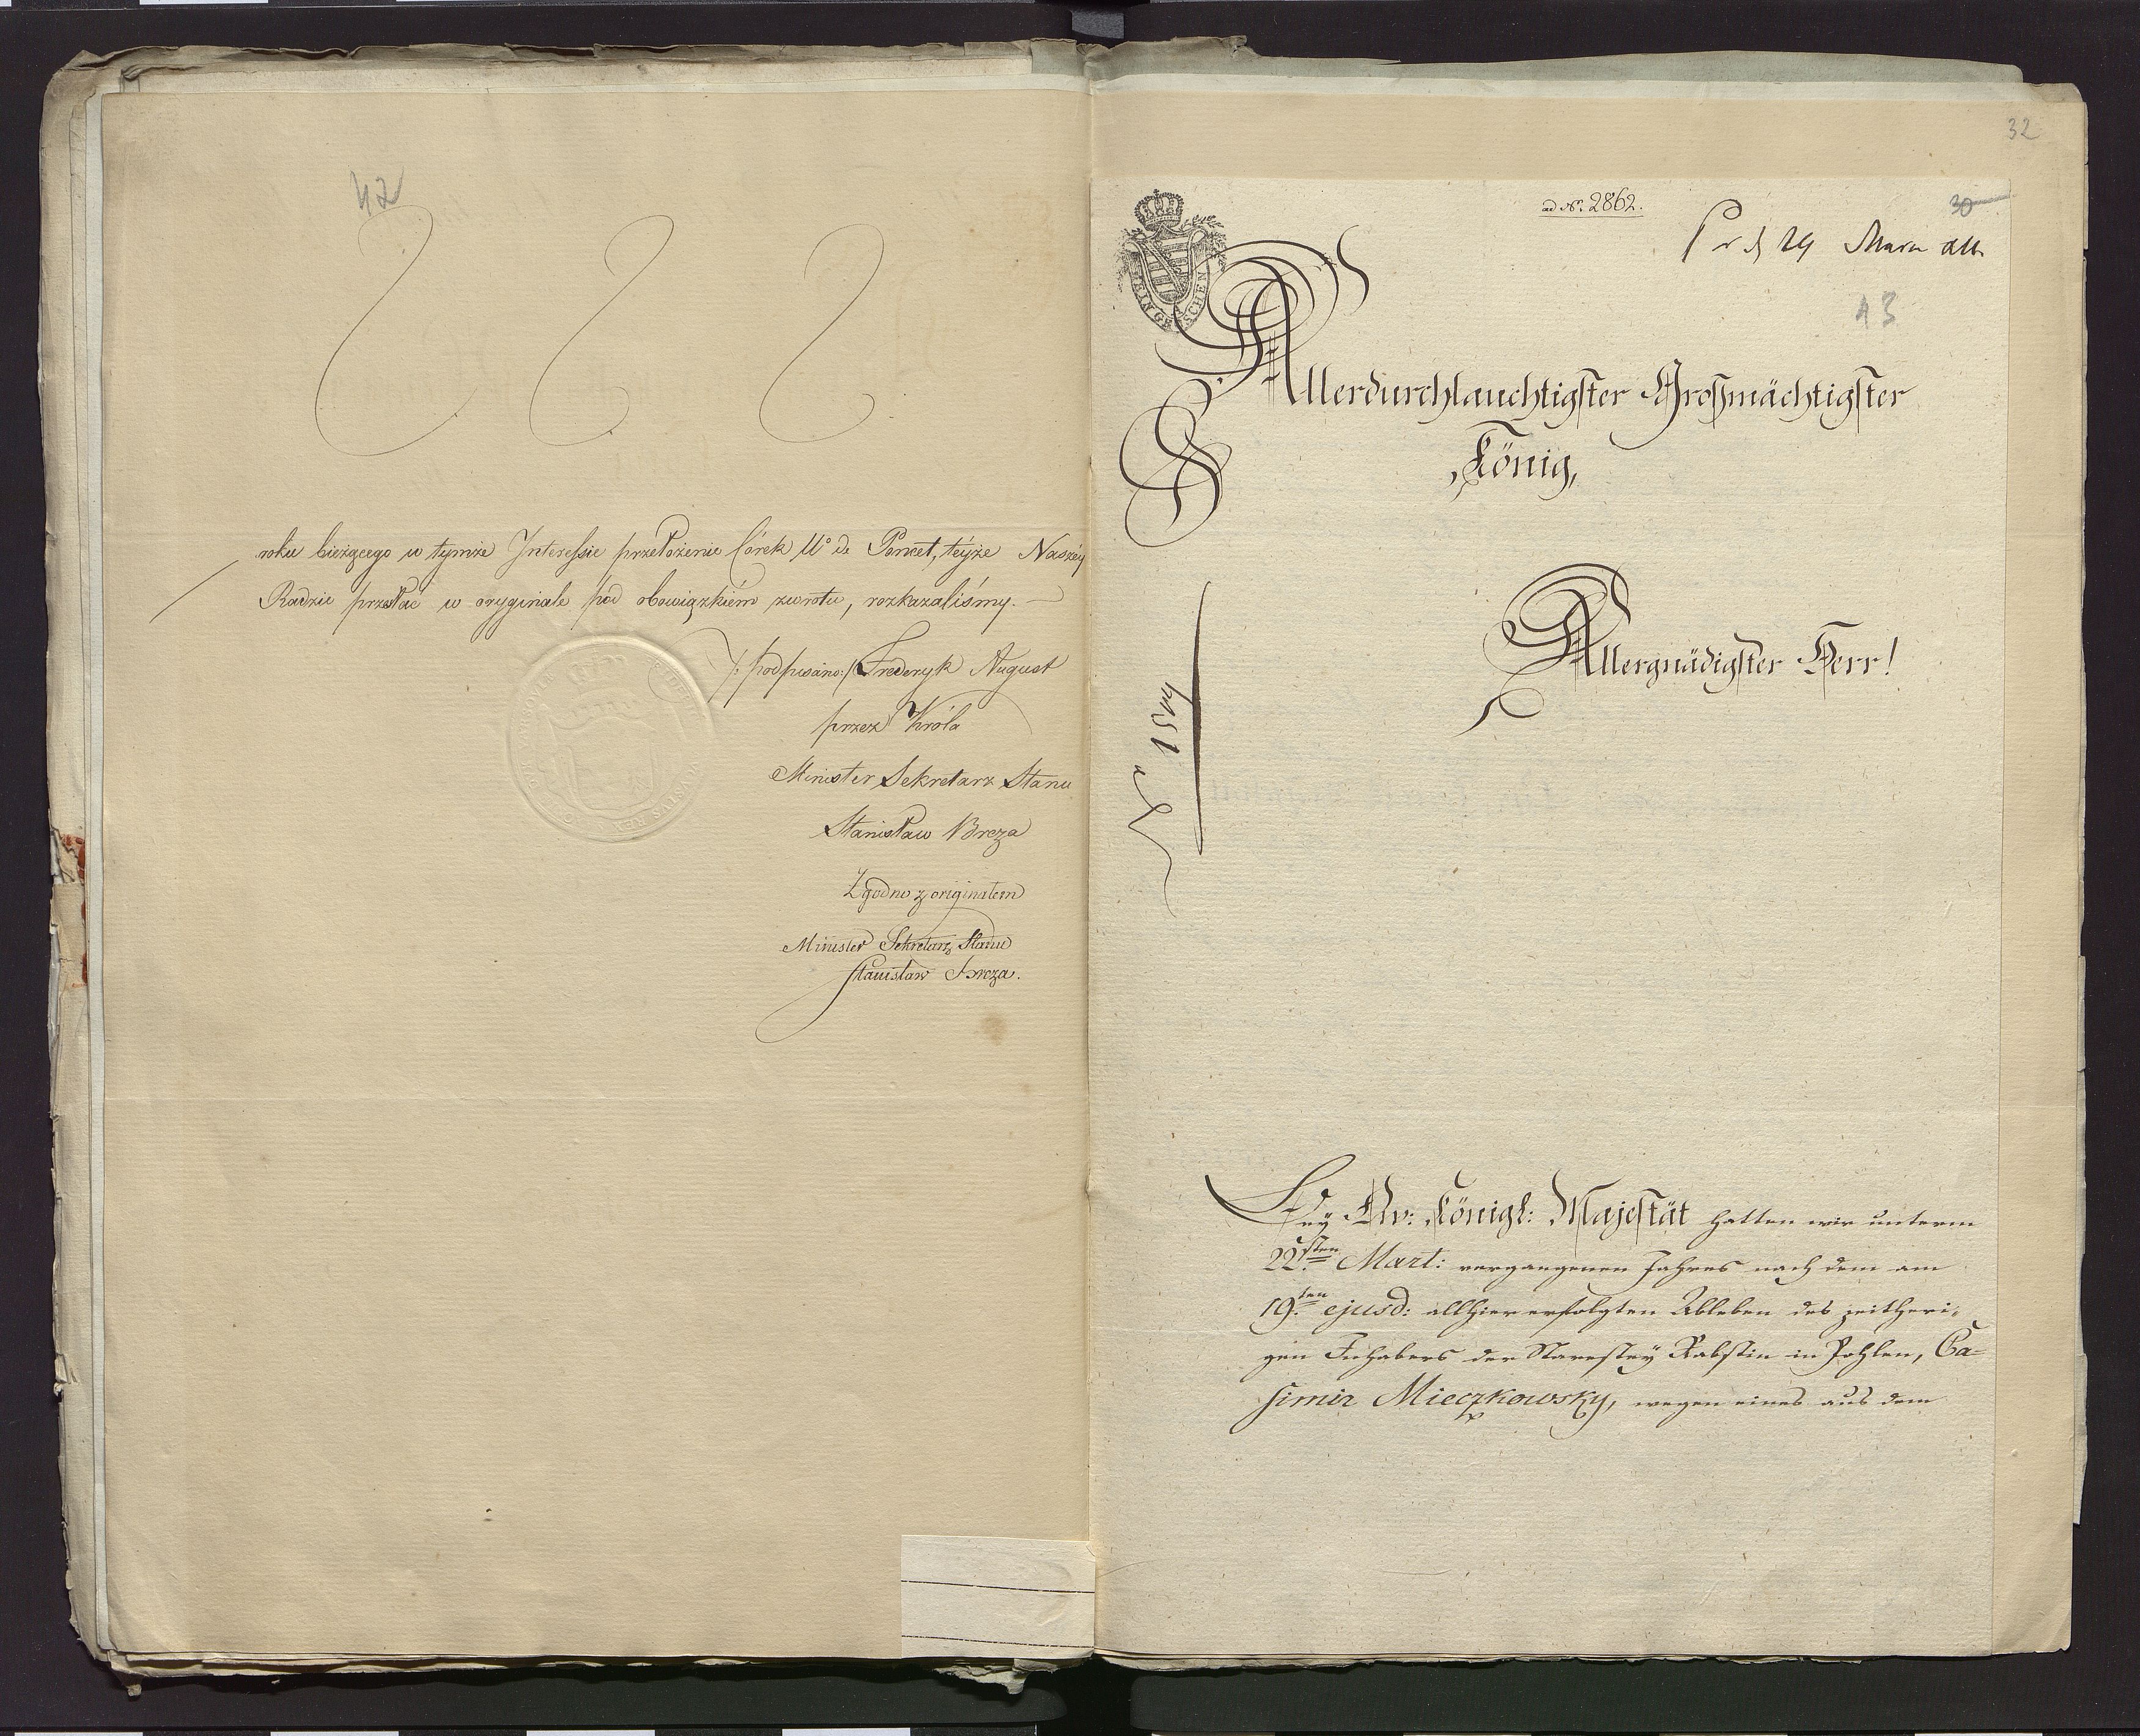 42
roku bieżącego w tymże Interessie przełożenie Córek Uo de Poncet, téyże Naszéy
Radzie przesłać w oryginale pod obowiązkiém zwrotu, rozkazaliśmy. —
/: podpisano :/ Frederyk August
przez Króla
Minister Sekretarz Stanu
Stanisław Breza
Zgodno z originałem
Minister Sekretarz Stanu
Stanisław Breza.
32
ad No. 2862.
30
43
Allerdurchlauchtigster Großmächtigster
König,
Allergnädigster Herr!
Bey Ew: Königl: Majestät hatten wir unterm
22sten Mart: vergangenen Jahres nach dem am
19.ten ejusd: allhier erfolgten Ableben des zeitheri-
gen Inhabers der Starostey Rabstin in Pohlen, Ca-
simir Mieczkowsky, wegen eines aus dem